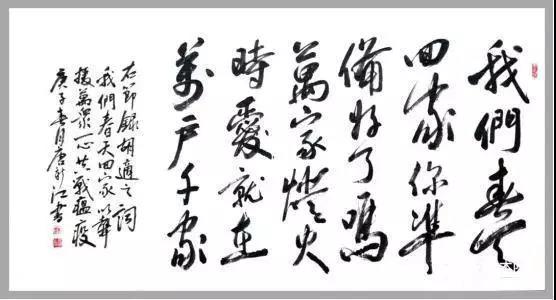 我們春天
回家你準
備好了嗎
萬家燈火
時愛就在
萬戶千家
右節錄胡適之詞
我們春天回家以聲
援萬眾一心共戰瘟疫
庚子春月唐 江書